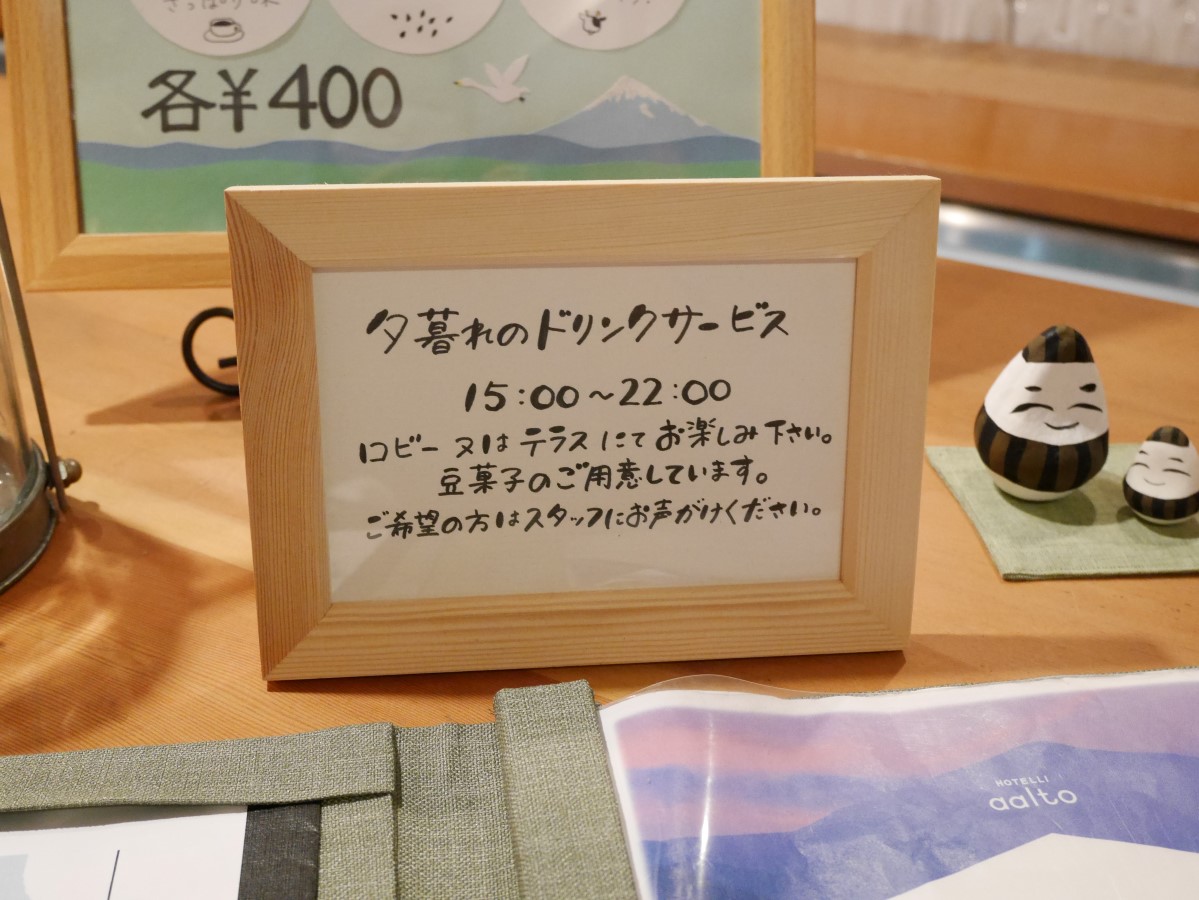 さっぱり味
各¥400
夕暮れのドリンクサービス
15:00～22:00
ロビー又はテラスにてお楽しみ下さい。
豆菓子のご用意しています。
ご希望の方はスタッフにお声がけください。
HOTELLI
aalto